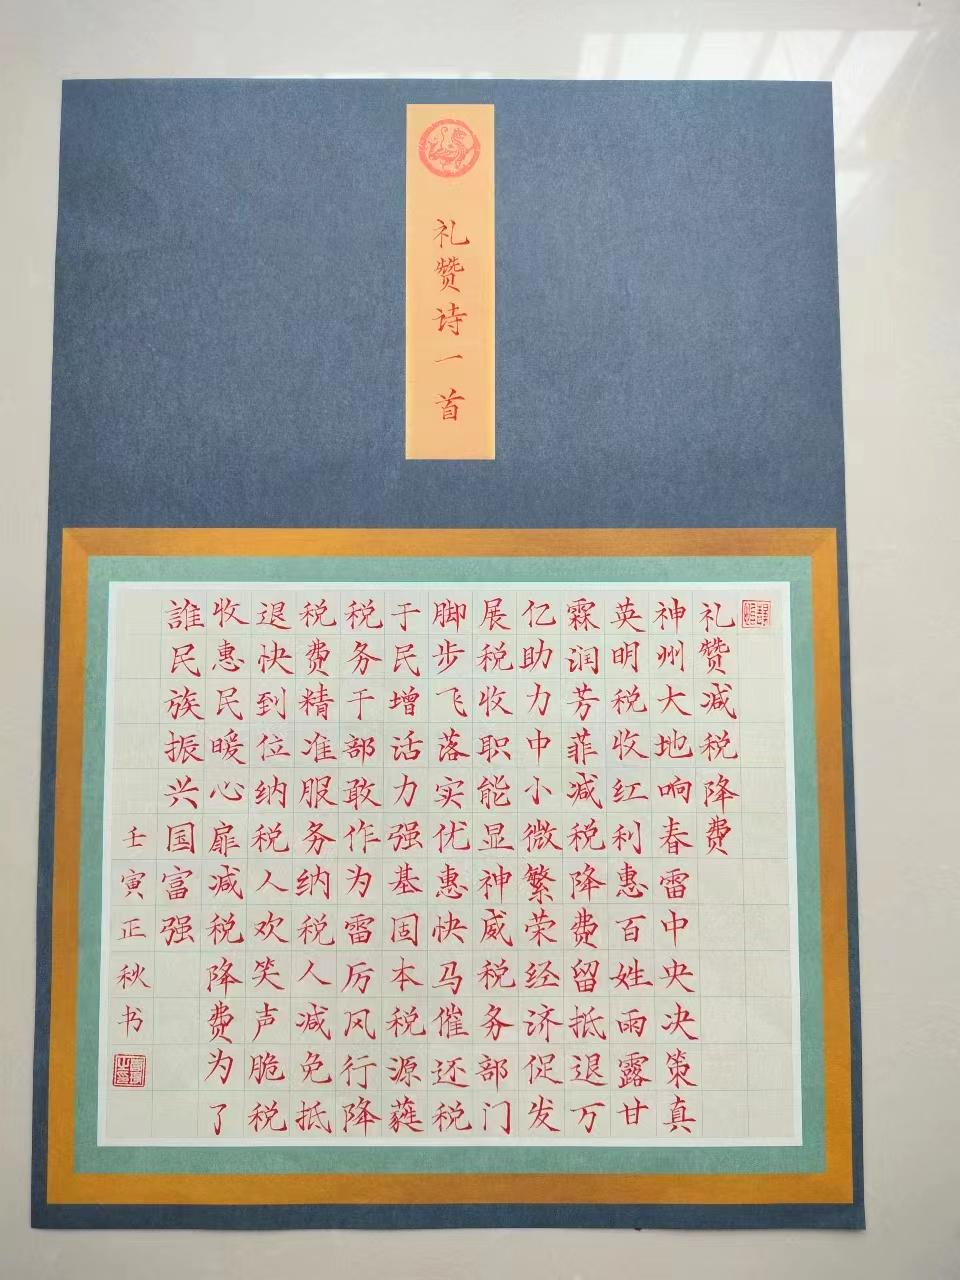 礼赞诗一首
礼赞减税降费
神州大地响春雷中央决策真
英明税收红利惠百姓雨露甘
霖润芳菲减税降费留抵退万
亿助力中小微繁荣经济促发
展税收职能显神威税务部门
脚步飞落实优惠快马催还税
于民增活力强基固本税源蕤
税务干部敢作为雷厉风行降
税费精准服务纳税人减免抵
退快到位纳税人欢笑声脆税
收惠民暖心扉减税降费为了
誰民族振兴国富强
壬寅正秋书